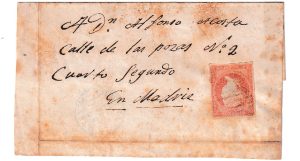 A Dn. Alfonso Acosta
Calle de las pozas No. 2
Cuarto Segundo
En Madrid